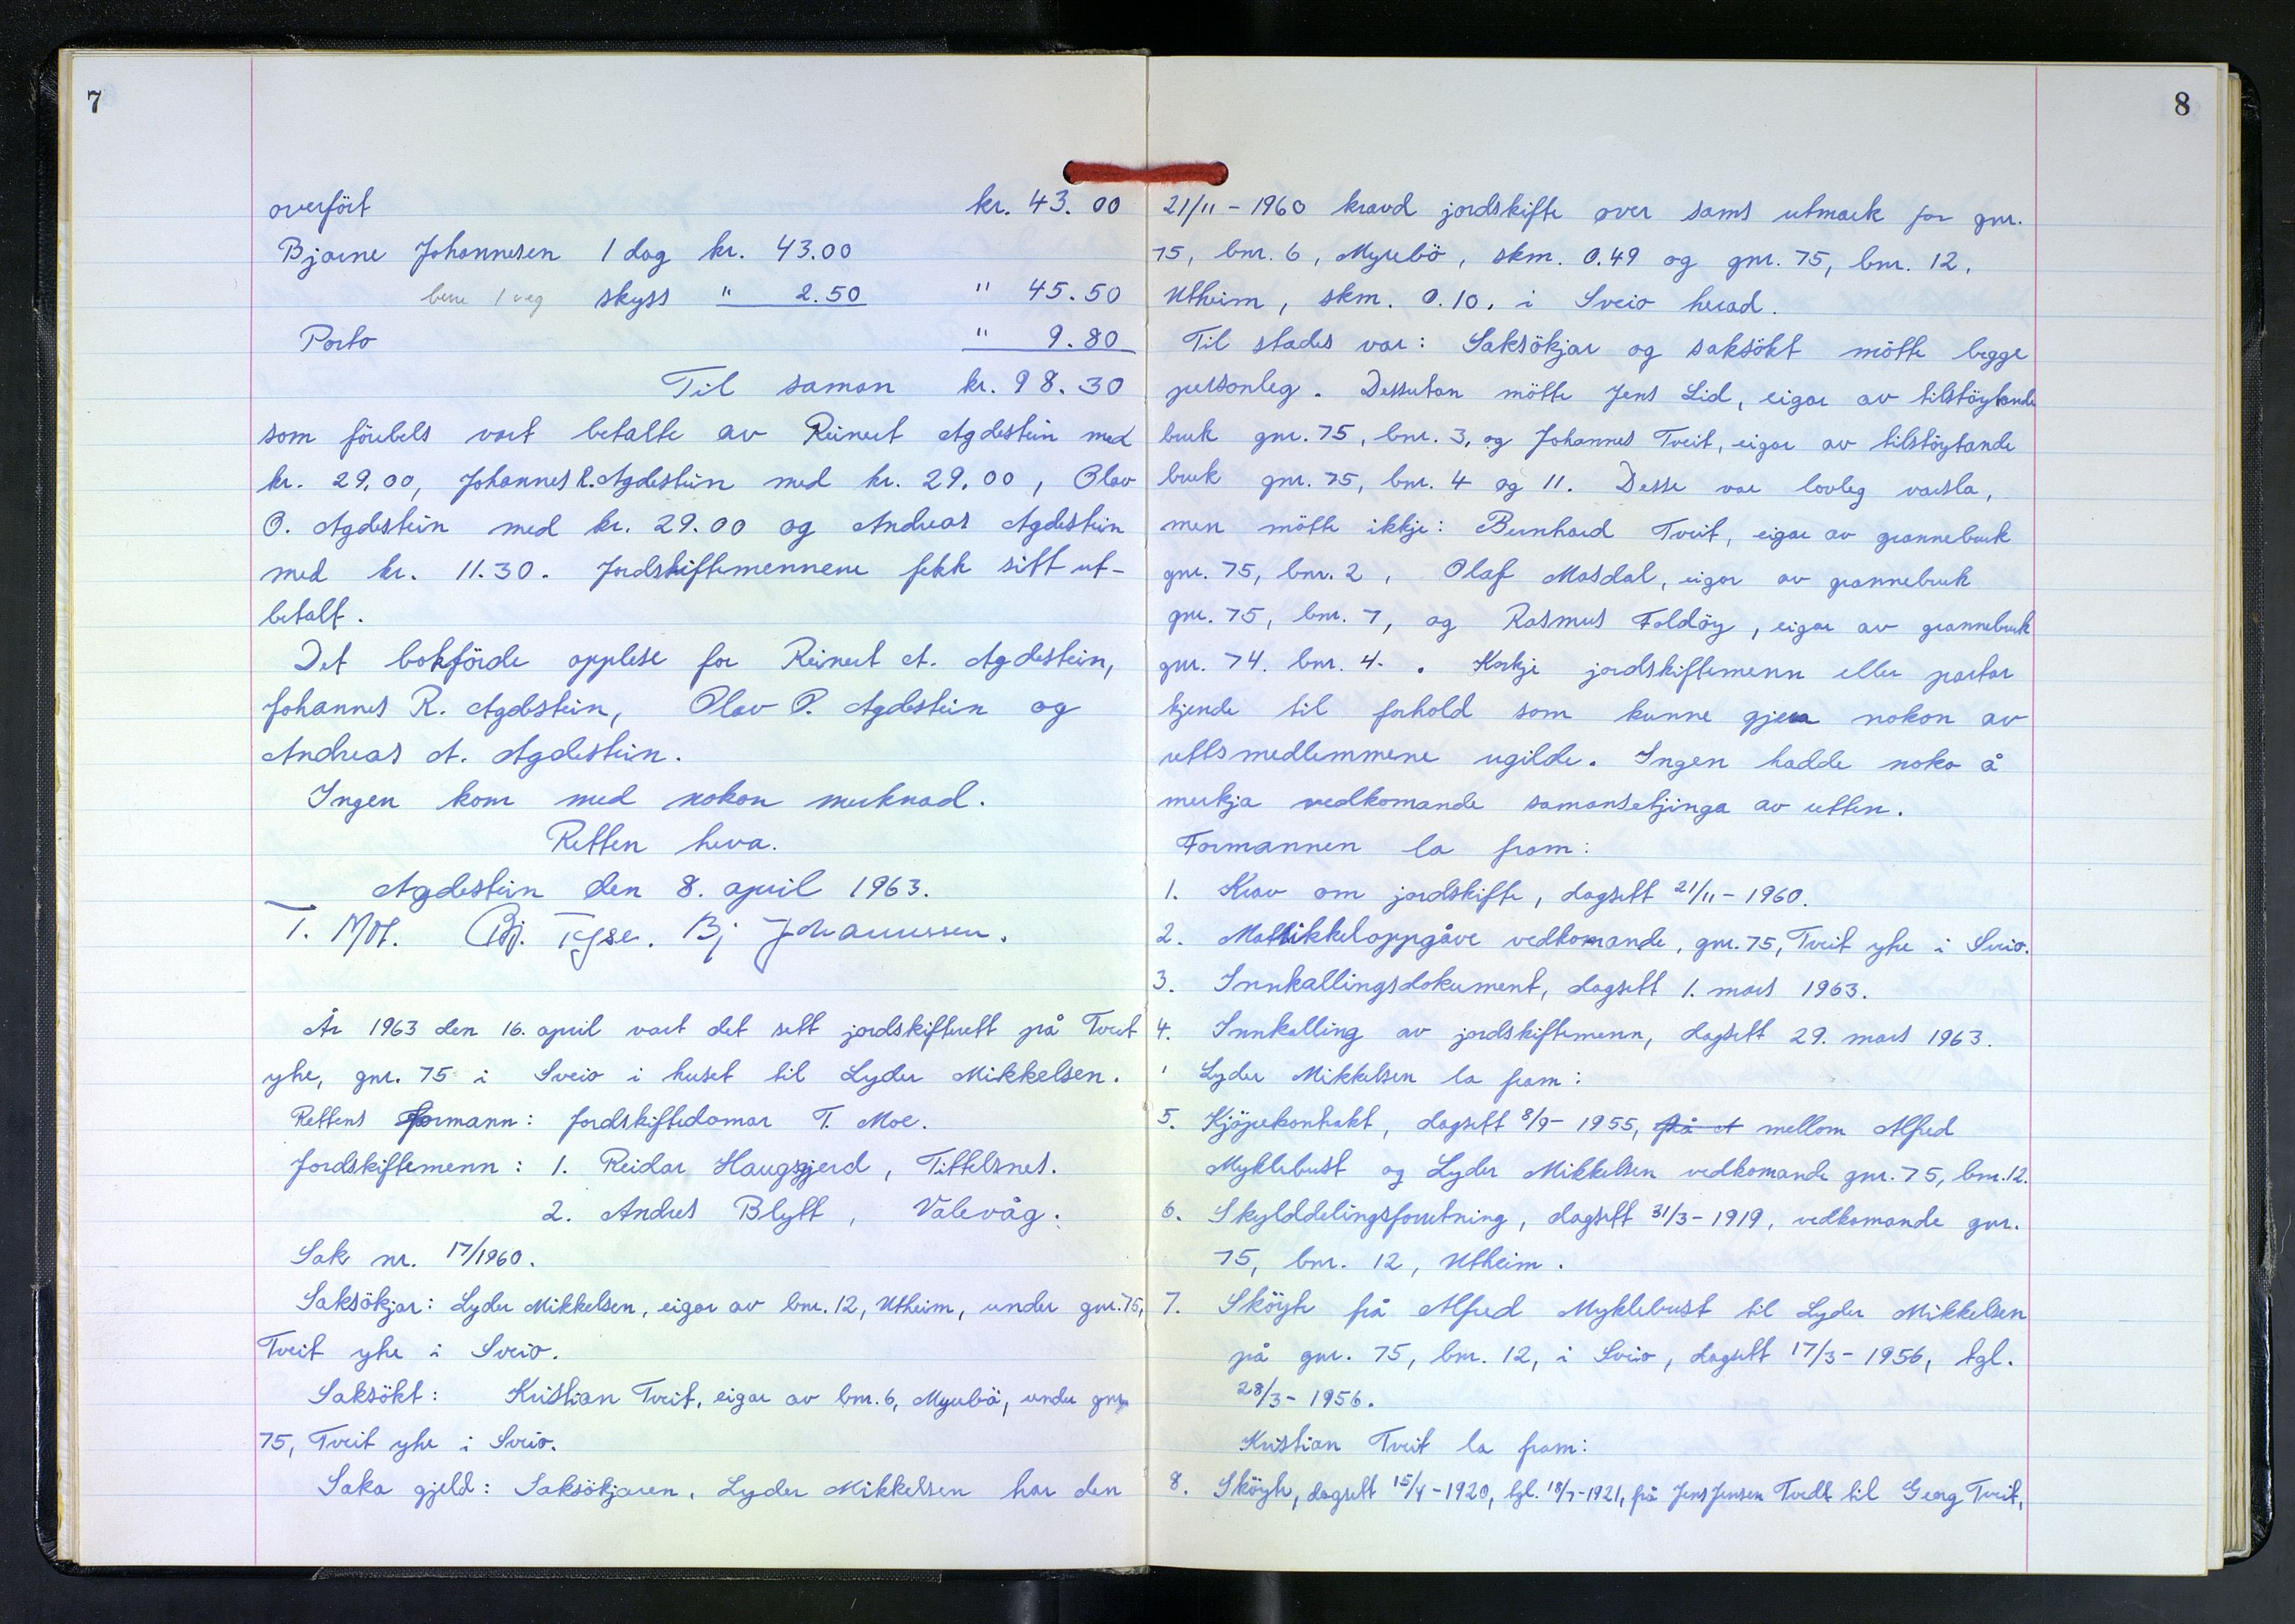 7
overfört kr. 43.00
Bjarne Johannesen 1 dag kr. 43.00
bere 1 veg skyss " 2.50 " 45.50
Porto " 9.80
Til saman kr. 98.30
som förebels vart betalte av Reinert Agdestein med
kr. 29.00, Johannes R. Agdestein med kr. 29.00, Olav
O. Agdestein med kr. 29.00 og Andreas Agdestein
med kr. 11.30. Jordskiftemennene fekk sitt ut-
betalt.
Det bokförde opplese for Reinert A. Agdestein,
Johannes R. Agdestein, Olav O. Agdestein og
Andreas A. Agdestein.
Ingen kom med nokon merknad.
Retten heva.
Agdestein den 8. april 1963.
T. Moe. Bj. Johannessen.
År 1963 den 16. april vart det sett jordskifterett på Tveit
yhe, gnr. 75 i Sveio i huset til Lyder Mikkelsen.
Rettens formann: Jordskiftedomar T. Moe.
Jordskiftemenn: 1. Reidar Haugsgjerd, Tittelsnes.
2. Andres Blytt, Valevåg.
Sak nr. 17/1960.
Saksökjar: Lyder Mikkelsen, eigar av bnr. 12, Utheim, under gnr. 75,
Tveit yhe i Sveio.
Saksökt: Kristian Tveit, eigar av bnr. 6, Myrebö, under gnr.
75, Tveit yhe i Sveio.
Saka gjeld: Saksökjaren, Lyder Mikkelsen har den
8
21/11-1960 kravd jordskifte over sams utmark for gnr.
75, bnr. 6, Myrebö, skm. 0.49 og gnr. 75, bnr. 12,
Utheim, skm. 0.10. i Sveio herad.
Til stades var: Saksökjar og saksökt mötte begge
personleg. Dessutan mötte Jens Lid, eigar av tilstöytande
bruk gnr. 75, bnr. 3, og Johannes Tveit, eigar av tilstöytande
bruk gnr. 75, bnr. 4 og 11. Desse var lovleg varsla,
men mötte ikkje: Bernhard Tveit, eigar av grannebruk
gnr. 75, bnr. 2, Olaf Masdal, eigar av grannebruk
gnr. 75, bnr. 7, og Rasmus Foldöy, eigar av grannebruk
gnr. 74. bnr. 4. . Korkje jordskiftemenn eller partar
kjende til forhold som kunne gjera nokon av
rettsmedlemmene ugilde. Ingen hadde noko å
merkja vedkomande samansetjinga av retten.
Formannen la fram:
1. Krav om jordskifte, dagsett 21/11-1960.
2. Matrikkeloppgåve vedkomande, gnr. 75, Tveit yhe i Sveio.
3. Innkallingsdokument, dagsett 1. mars 1963.
4. Innkalling av jordskiftemenn, dagsett 29. mars 1963.
Lyder Mikkelsen la fram:
5. Kjöpekontrakt, dagsett 8/9-1955, frå A mellom Alfred
Myklebust og Lyder Mikkelsen vedkomande gnr. 75, bnr. 12.
6. Skylddelingsforretning, dagsett 31/3-1919, vedkomande gnr.
75, bnr. 12, Utheim.
7. Sköyte frå Alfred Myklebust til Lyder Mikkelsen
på gnr. 75, bnr. 12, i Sveio, dagsett 17/3-1956, tgl.
28/3-1956.
Kristian Tveit la fram:
8. Sköyte, dagsett 15/4-1920, tgl. 18/7-1921, frå Jens Jensen Tvedt til Georg Tveit,